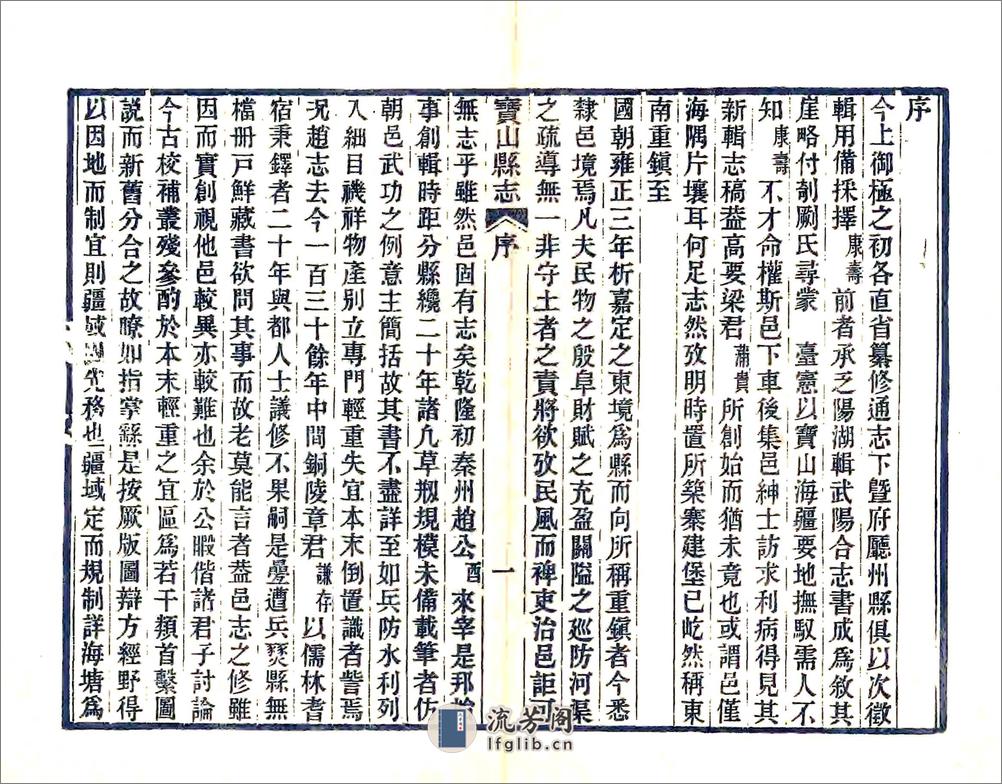 序
今上御極之初各直省纂修通志下暨府廳州縣俱以次徵
輯用備採擇康壽前者承乏陽湖輯武陽合志書成爲敘其
崖略付剞劂氏尋蒙臺憲以寶山海疆要地撫馭需人不
知康壽不才命權斯邑下車後集邑紳士訪求利病得見其
新輯志稿葢高要梁君蕭貴所創始而猶未竟也或謂邑僅
海隅片壤耳何足志然攷明時置所築寨建堡已屹然稱東
南重鎮至
國朝雍正三年析嘉定之東境爲縣而向所稱重鎮者今悉
隸邑境焉凡夫民物之殷阜財賦之充盈關隘之巡防河渠
之疏導無一非守土者之責將欲攷民風而裨吏治邑詎可
寶山縣志 序 一
無志乎雖然邑固有志矣乾隆初秦州趙公酉來宰是邦始
事創輯時距分縣纔二十年諸凡草剏規模未備載筆者仿
朝邑武功之例意主簡括故其書不盡詳至如兵防水利列
入細目禨祥物產別立專門輕重失宜本末倒置識者訾焉
况趙志去今一百三十餘年中間銅陵章君謙存以儒林耆
宿秉鐸者二十年與都人士議修不果嗣是疊遭兵燹縣無
檔冊戸鮮藏書欲問其事而故老莫能言者葢邑志之修雖
因而實創視他邑較異亦較難也余於公暇偕諸君子討論
今古校補叢殘參酌於本末輕重之宜區爲若干類首繫圖
説而新舊分合之故瞭如指掌繇是按厥版圖辯方經野得
以因地而制宜則疆域先務也疆域定而規制詳海塘爲
流芳阁
lfglib.cn